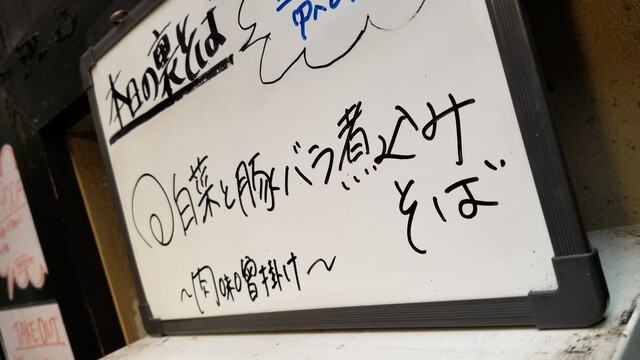 本日の裏そば
白菜と豚バラ煮込み
そば
~肉味噌掛け~
TAKE OUT